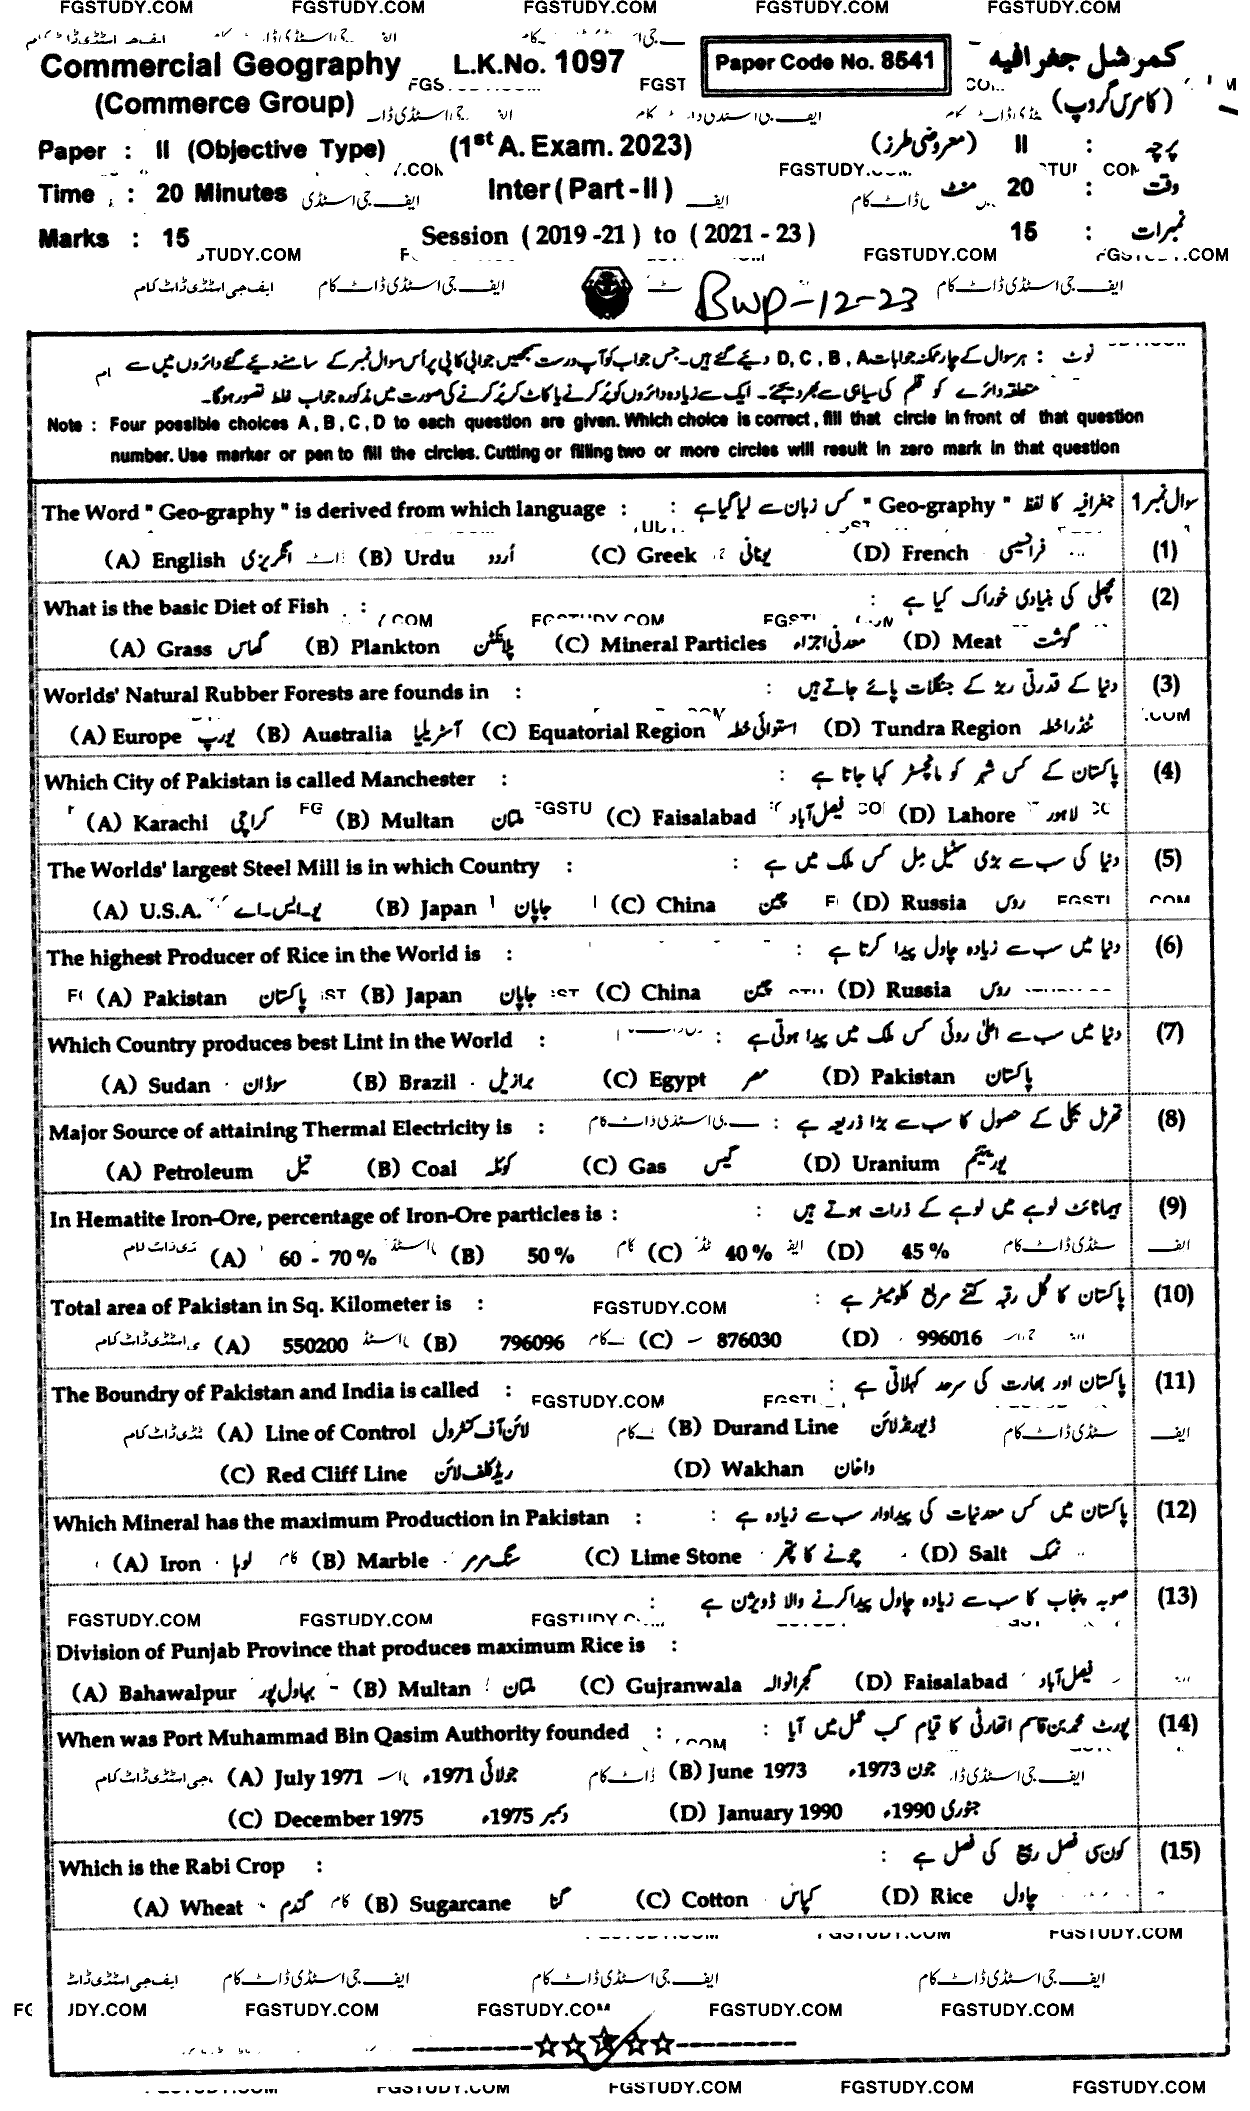 FGSTUDY.COM FGSTUDY.COM FGSTUDY.COM FGSTUDY.COM FGSTUDY.COM
Commercial Geography L.K.No. 1097 Paper Code No. 8541 کمرشل جغرافیہ
(Commerce Group) (کامرس گروپ)
Paper : II (Objective Type) (1st A. Exam. 2023) پرچہ : II (معروضی طرز)
Time : 20 Minutes Inter ( Part - II ) وقت : 20 منٹ
Marks : 15 Session ( 2019 -21 ) to ( 2021 - 23 ) نمبرات : 15
BWP-12-23
نوٹ : ہر سوال کے چار ممکنہ جوابات D , C , B , A دیئے گئے ہیں۔ جس جواب کو آپ درست سمجھیں جوابی کاپی پر اُس سوال نمبر کے سامنے دیئے گئے دائروں میں سے
متعلقہ دائرے کو قلم کی سیاہی سے بھر دیجئے۔ ایک سے زیادہ دائروں کو پُر کرنے یا کاٹ کر پُر کرنے کی صورت میں مذکورہ جواب غلط تصور ہوگا۔
Note : Four possible choices A , B , C , D to each question are given. Which choice is correct , fill that circle in front of that question
number. Use marker or pen to fill the circles. Cutting or filling two or more circles will result in zero mark in that question
The Word " Geo-graphy " is derived from which language : جغرافیہ کا لفظ " Geo-graphy " کس زبان سے لیا گیا ہے : سوال نمبر 1
(A) English انگریزی (B) Urdu اُردو (C) Greek یونانی (D) French فرانسیسی (1)
What is the basic Diet of Fish : مچھلی کی بنیادی خوراک کیا ہے : (2)
(A) Grass گھاس (B) Plankton پلانکٹن (C) Mineral Particles معدنی اجزاء (D) Meat گوشت
Worlds' Natural Rubber Forests are founds in : دنیا کے قدرتی ربڑ کے جنگلات پائے جاتے ہیں : (3)
(A) Europe یورپ (B) Australia آسٹریلیا (C) Equatorial Region استوائی خطہ (D) Tundra Region ٹنڈرا خطہ
Which City of Pakistan is called Manchester : پاکستان کے کس شہر کو مانچسٹر کہا جاتا ہے : (4)
(A) Karachi کراچی (B) Multan ملتان (C) Faisalabad فیصل آباد (D) Lahore لاہور
The Worlds' largest Steel Mill is in which Country : دنیا کی سب سے بڑی سٹیل مِل کس ملک میں ہے : (5)
(A) U.S.A. یو۔ایس۔اے (B) Japan جاپان (C) China چین (D) Russia روس
The highest Producer of Rice in the World is : دنیا میں سب سے زیادہ چاول پیدا کرتا ہے : (6)
(A) Pakistan پاکستان (B) Japan جاپان (C) China چین (D) Russia روس
Which Country produces best Lint in the World : دنیا میں سب سے اعلیٰ روئی کس ملک میں پیدا ہوتی ہے : (7)
(A) Sudan سوڈان (B) Brazil برازیل (C) Egypt مصر (D) Pakistan پاکستان
Major Source of attaining Thermal Electricity is : تھرمل بجلی کے حصول کا سب سے بڑا ذریعہ ہے : (8)
(A) Petroleum تیل (B) Coal کوئلہ (C) Gas گیس (D) Uranium یورینیم
In Hematite Iron-Ore, percentage of Iron-Ore particles is : ہیماٹائٹ لوہے میں لوہے کے ذرات ہوتے ہیں : (9)
(A) 60 - 70 % (B) 50 % (C) 40 % (D) 45 %
Total area of Pakistan in Sq. Kilometer is : پاکستان کا کُل رقبہ کتنے مربع کلومیٹر ہے : (10)
(A) 550200 (B) 796096 (C) 876030 (D) 996016
The Boundry of Pakistan and India is called : پاکستان اور بھارت کی سرحد کہلاتی ہے : (11)
(A) Line of Control لائن آف کنٹرول (B) Durand Line ڈیورنڈ لائن
(C) Red Cliff Line ریڈ کلف لائن (D) Wakhan واخان
Which Mineral has the maximum Production in Pakistan : پاکستان میں کس معدنیات کی پیداوار سب سے زیادہ ہے : (12)
(A) Iron لوہا (B) Marble سنگ مرمر (C) Lime Stone چونے کا پتھر (D) Salt نمک
صوبہ پنجاب کا سب سے زیادہ چاول پیدا کرنے والا ڈویژن ہے : (13)
Division of Punjab Province that produces maximum Rice is :
(A) Bahawalpur بہاولپور (B) Multan ملتان (C) Gujranwala گجرانوالہ (D) Faisalabad فیصل آباد
When was Port Muhammad Bin Qasim Authority founded : پورٹ محمد بن قاسم اتھارٹی کا قیام کب عمل میں آیا : (14)
(A) July 1971 جولائی 1971ء (B) June 1973 جون 1973ء
(C) December 1975 دسمبر 1975ء (D) January 1990 جنوری 1990ء
Which is the Rabi Crop : کون سی فصل ربیع کی فصل ہے : (15)
(A) Wheat گندم (B) Sugarcane گنا (C) Cotton کپاس (D) Rice چاول
ایف جی اسٹڈی ڈاٹ کام ایف جی اسٹڈی ڈاٹ کام ایف جی اسٹڈی ڈاٹ کام
FGSTUDY.COM FGSTUDY.COM FGSTUDY.COM FGSTUDY.COM
FGSTUDY.COM FGSTUDY.COM FGSTUDY.COM FGSTUDY.COM